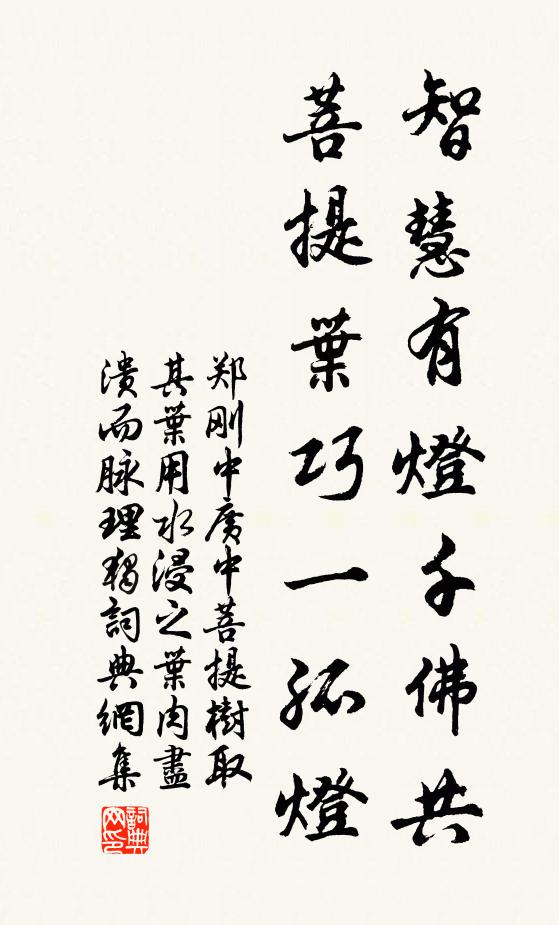 智慧有燈千佛共
菩提葉巧一孤燈
郑刚中廣中菩提樹取
其葉用水浸之葉肉盡
潰而脉理獨詞典網集
詞典网印